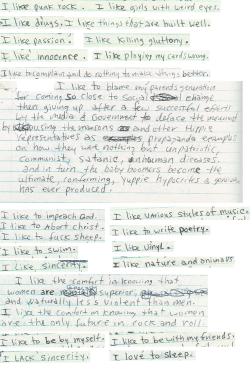 I like punk rock. I like girls with weird eyes.
I like drugs. I like things that are built well.
I like passion. I like killing gluttony.
I like innocence. I like playing my cards wrong.
I like to complain and do nothing to make things better.
I like to blame my parents generation
for coming so close to social change
then giving up after a few successful efforts
by the media & Government to deface the movement
by using the mansons and other Hippie
representatives as propaganda examples
on how they were nothing but unpatriotic,
communist, satanic, inhuman diseases.
and in turn the baby boomers became the
ultimate, conforming, yuppie hypocrites a generation
has ever produced.
I like to impeach God.
I like to Abort christ.
I like to fuck sheep.
I like various styles of music.
I like to write poetry.
I like to swim.
I like vinyl.
I like sincerity.
I like nature and animals.
I like the comfort in knowing that
women are superior,
and naturally less violent than men.
I like the comfort in knowing that women
are the only future in rock and roll.
I like to be by myself.
I like to be with my friends.
I LACK sincerity.
I love to sleep.